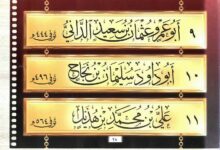 ٩ أبو عمرو عثمان بن سعيد الداني ت ٤٤٤ هـ
١٠ أبو داود سليمان بن نجاح ت ٤٩٦ هـ
١١ علي بن محمد بن هذيل ت ٥٦٤ هـ